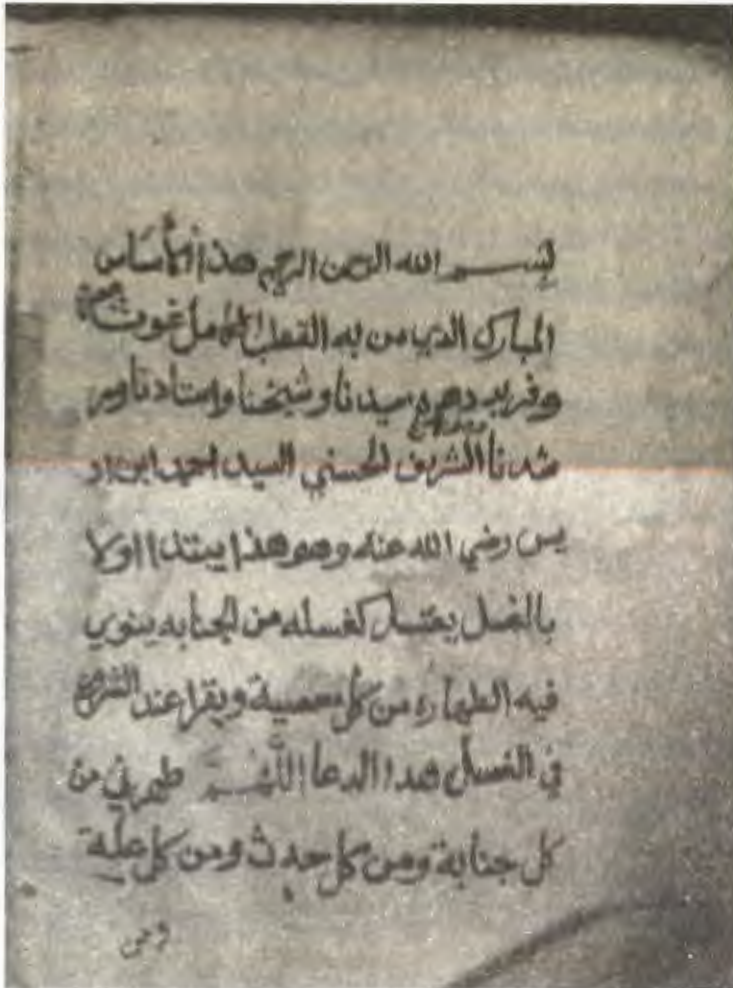 بسم الله الرحمن الرحيم هذا الأساس
المبارك الذي من به القطب الكامل غوث عصره
وفريد دهره سيدنا وشيخنا واستادنا ومر
شدنا الشريف الحسني السيد احمد ابن ادر
يس رضي الله عنه وهو هذا يبتدا اولا
بالغسل يغتسل كغسله من الجنابه ينوي
فيه الطهاره من كل معصية ويقرا عند الشروع
في الغسل هدا الدعا اللهم طهرني من
كل جنابة ومن كل حدث ومن كل علة
ومن